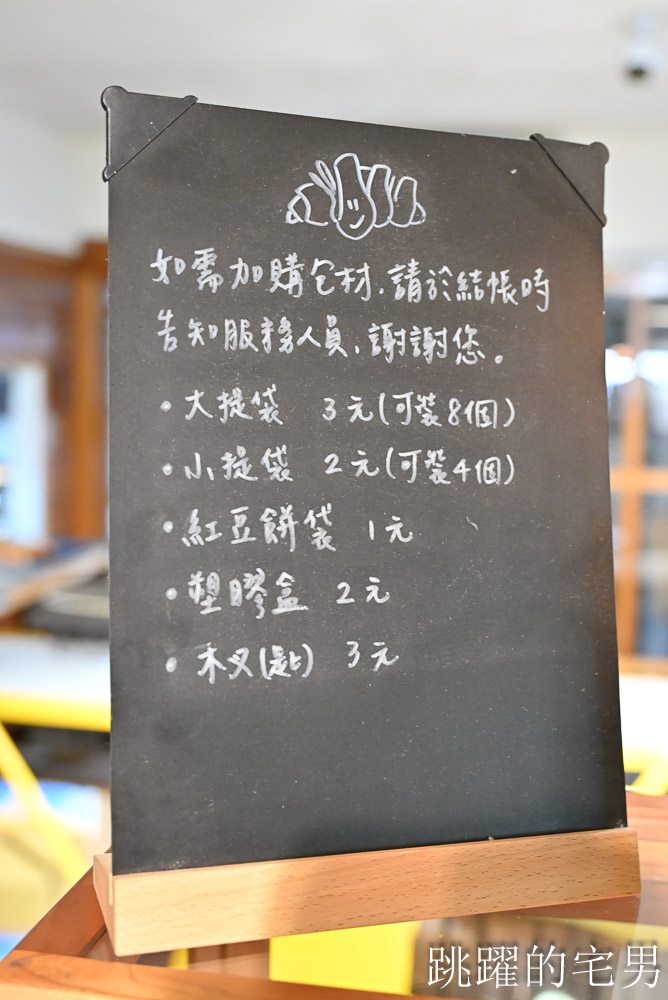 如需加購包材,請於結帳時
告知服務人員,謝謝您。
• 大提袋 3元(可裝8個)
• 小提袋 2元(可裝4個)
• 紅豆餅袋 1元
• 塑膠盒 2元
• 木叉(匙) 3元
跳躍的宅男